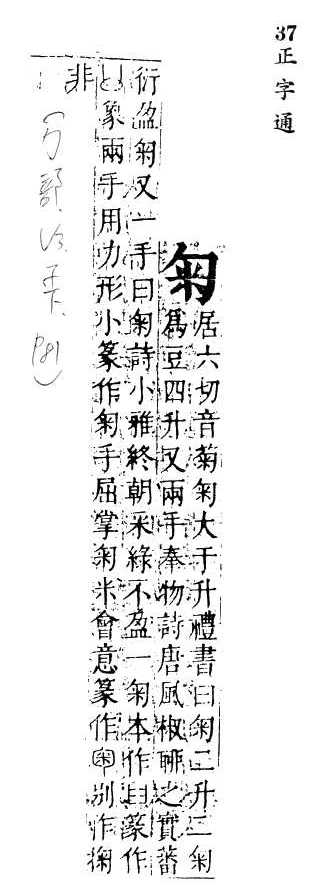 37正字通
匊
居六切音菊匊大于升禮書曰匊二升二匊
爲豆四升又兩手奉物詩唐風椒聊之實蕃
衍盈匊又一手曰匊詩小雅終朝采綠不盈一匊本作𦥑篆作
象兩手用力形小篆作匊手屈掌匊米會意篆作別作掬
非
(勹部
P81)